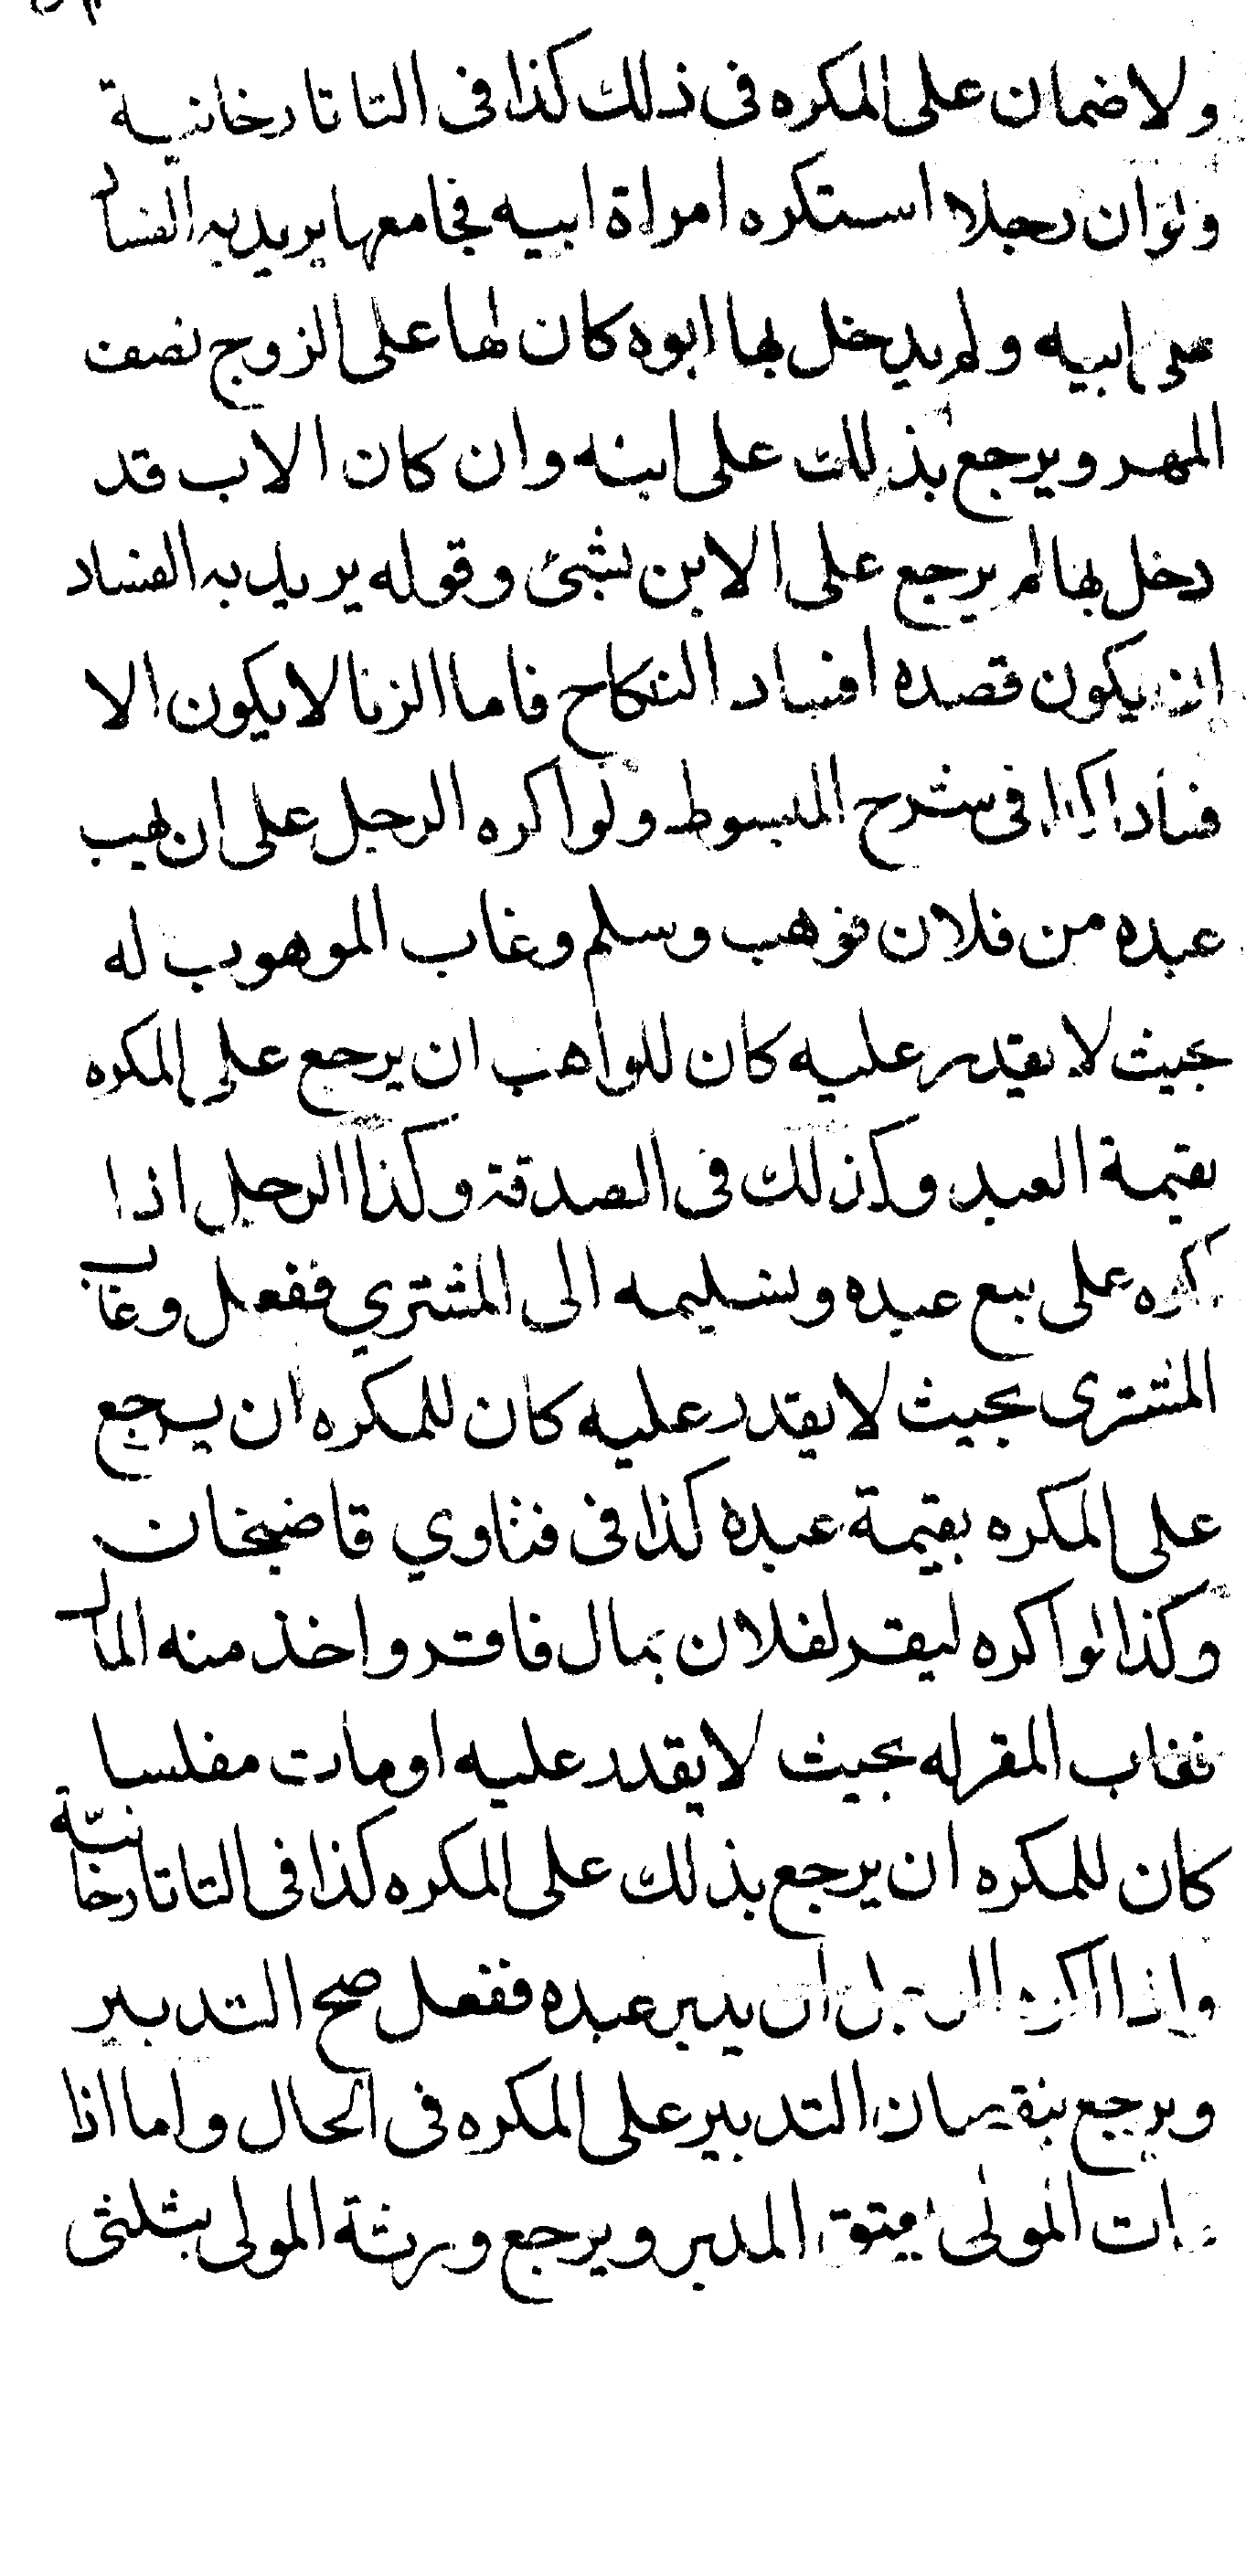 ولا ضمان على المكره فى ذلك كذا فى التاتارخانية
ولو ان رجلا استكره امراة ابيه فجامعها يريد به الفساد
على ابيه ولم يدخل بها ابوه كان لها على الزوج نصف
المهر ويرجع بذلك على ابنه وان كان الاب قد
دخل بها لم يرجع على الابن بشئ وقوله يريد به الفساد
ان يكون قصده افساد النكاح فاما الزنا لا يكون الا
فسادا كذا فى شرح المبسوط ولو اكره الرجل على ان يهب
عبده من فلان فوهب وسلم وغاب الموهوب له
بحيث لا يقدر عليه كان للواهب ان يرجع على المكره
بقيمة العبد وكذلك فى الصدقة وكذا الرجل اذا
اكره على بيع عبده وتسليمه الى المشتري ففعل وغاب
المشترى بحيث لا يقدر عليه كان للمكره ان يرجع
على المكره بقيمة عبده كذا فى فتاوي قاضيخان
وكذا لو اكره ليقر لفلان بمال فاقر واخذ منه المال
فغاب المقر له بحيث لا يقدر عليه او مات مفلسا
كان للمكره ان يرجع بذلك على المكره كذا فى التاتارخانيّة
واذا اكره الرجل ان يدبر عبده ففعل صح التدبير
ويرجع بنقصان التدبير على المكره فى الحال واما اذا
مات المولى يعتق المدبر ويرجع ورثة المولى بثلثى